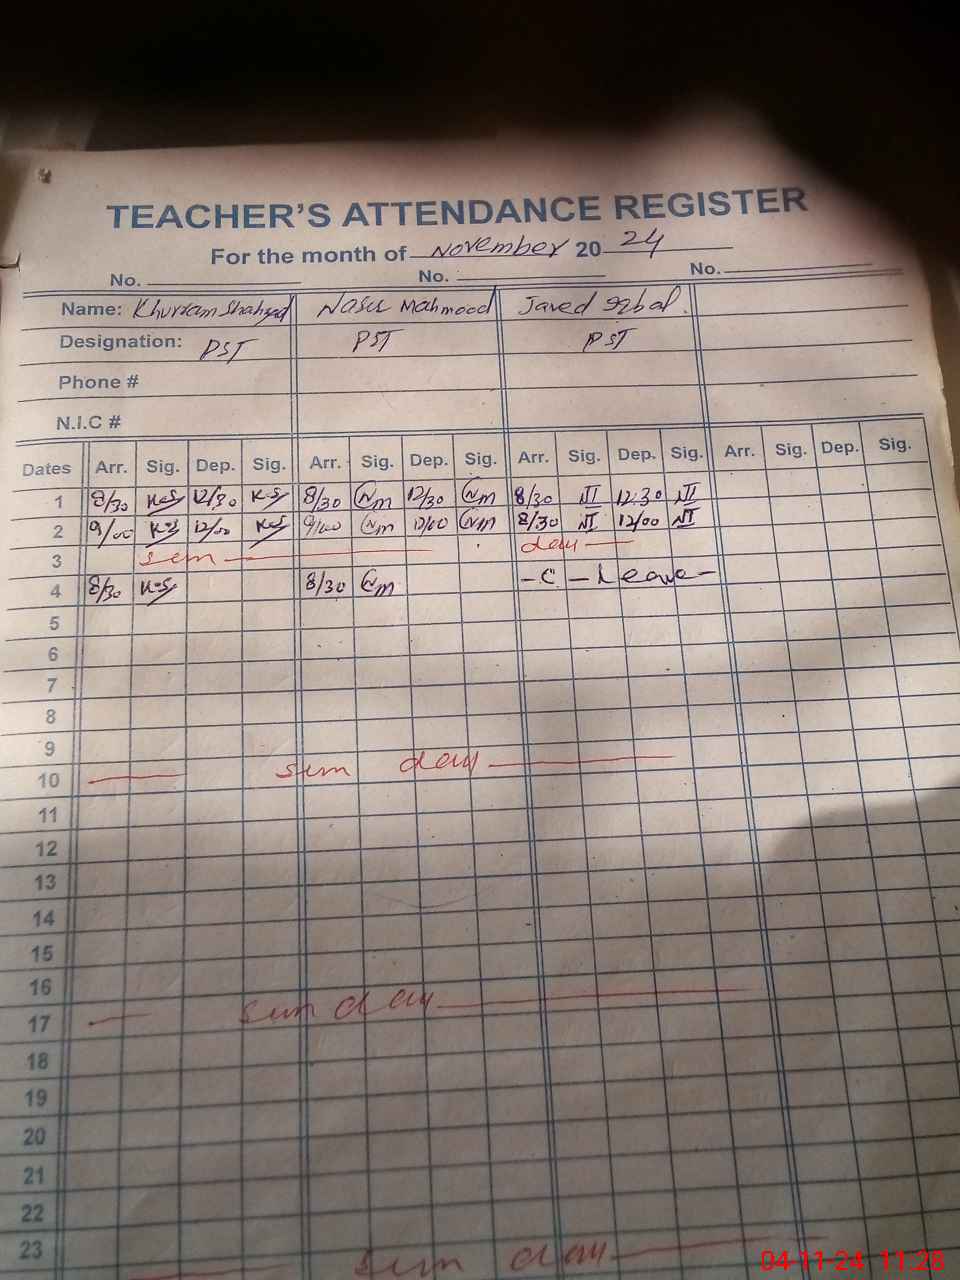 TEACHER'S ATTENDANCE REGISTER
For the month of November 20 24
No. No. No.
Name: Khurram Shahzad Nasir Mahmood Javed Iqbal.
Designation: PST PST PST
Phone #
N.I.C #
Dates Arr. Sig. Dep. Sig. Arr. Sig. Dep. Sig. Arr. Sig. Dep. Sig. Arr. Sig. Dep. Sig.
1 8/30 K=S 12/30 K=S 8/30 Nm 12/30 Nm 8/30 12.30
2 9/00 K=S 12/00 K=S 9/00 Nm 12/00 Nm 8/30 12/00
3 sun day
4 8/30 K=S 8/30 Nm - C - Leave -
5
6
7
8
9
10 sun day
11
12
13
14
15
16
17 sun day
18
19
20
21
22
23
sun day
04-11-24 11:28